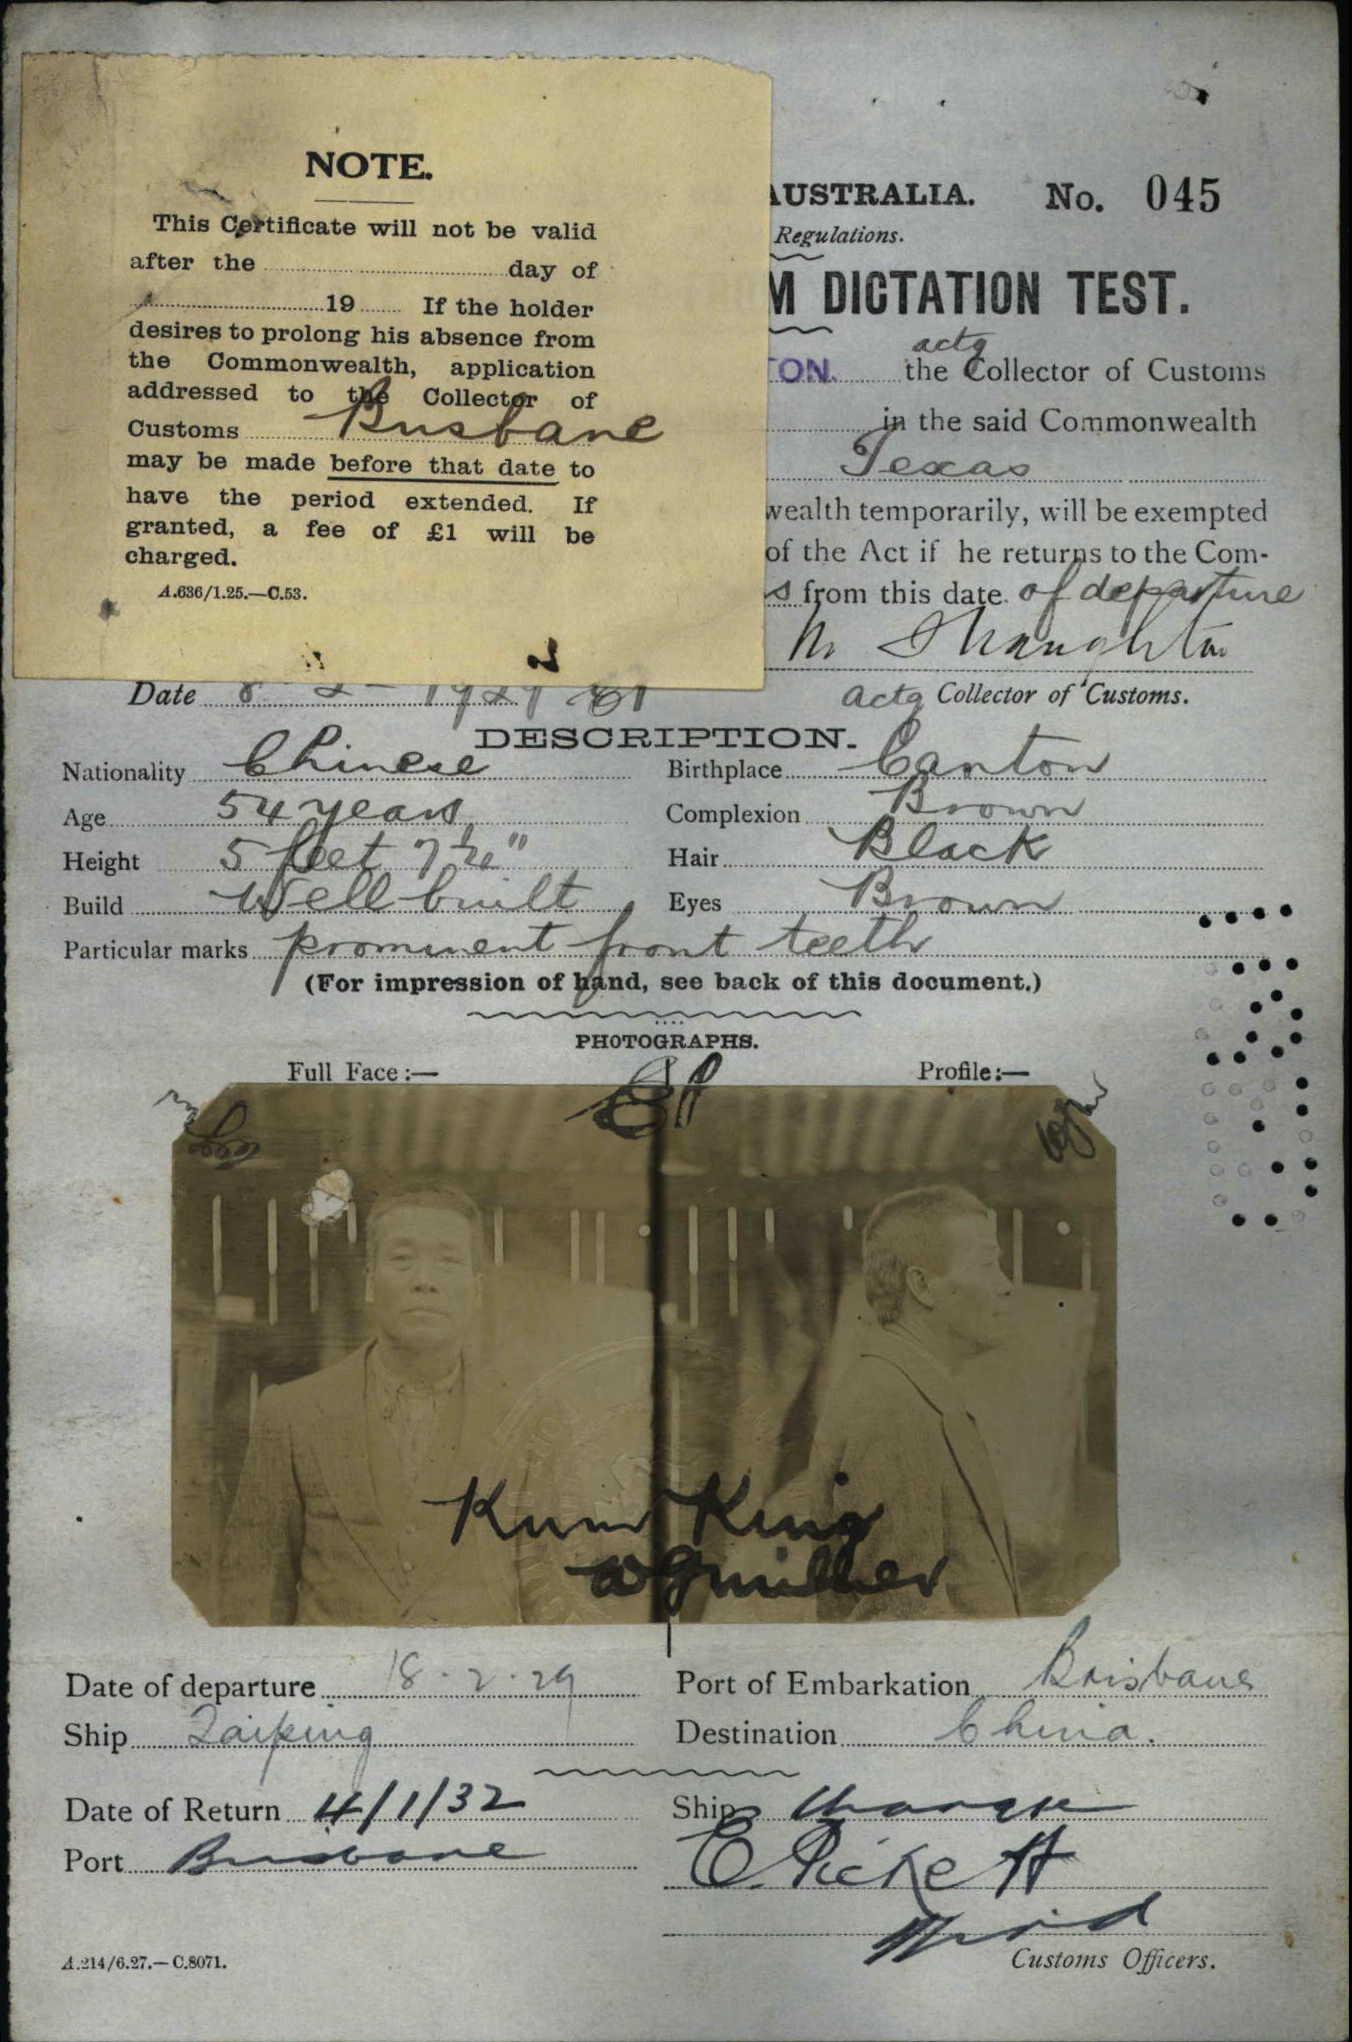 NOTE.
This Certificate will not be valid
after the day of
19 If the holder
desires to prolong his absence from
the Commonwealth, application
addressed to the Collector of
Customs Brisbane
may be made before that date to
have the period extended. If
granted, a fee of £1 will be
charged.
A.636/1.25.—C.53.
AUSTRALIA. No. 045
Regulations.
M DICTATION TEST.
actg
TON. the Collector of Customs
in the said Commonwealth
Texas
wealth temporarily, will be exempted
of the Act if he returns to the Com-
s from this date of departure
Actg Collector of Customs.
Date 8 - 2 - 1929
DESCRIPTION.
Nationality Chinese Birthplace Canton
Age 54 years Complexion Brown
Height 5 feet 7½" Hair Black
Build Well built Eyes Brown
Particular marks prominent front teeth
(For impression of hand, see back of this document.)
PHOTOGRAPHS.
Full Face:— Profile:—
Kum King
Date of departure 18.2.29 Port of Embarkation Brisbane
Ship Taiping Destination China.
Date of Return 4/1/32 Ship
Port Brisbane E. Pickett
Customs Officers.
A.214/6.27.—C.8071.